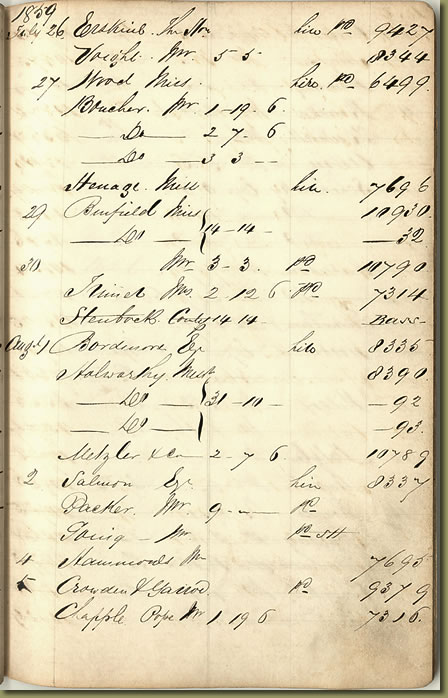 1859
July 26 Erskine. The Mrs hire pd 9427
Voight. Mr 5 5 8344
27 Wood Miss hire. pd 6499.
Boucher. Mr 1-19. 6
— Do — 2 7. 6
— Do — 3 3 --
Henage. Miss hire. 7696
29 Binfield Miss 10930
— Do — 14-14- —32
30 Mr 3-3. pd 10790
Mrs. 2-12 6 pd 7314
Stenbock. Count 14 14 Bass-
Aug 1 Esq hire 8335
Holworthy. Miss 8390
— Do — 31-10- —92
— Do — —93.
Metzler & Co — 2-7 6 10789
2 Salmon Esq hire 8337
Packer. Mr. 9 - — pd
Going - Mr pd SH
4 Hammonds Mr 7695
5 Crowden & Garrod pd 9379
Chapple Pope Mr 1 19 6 7316.